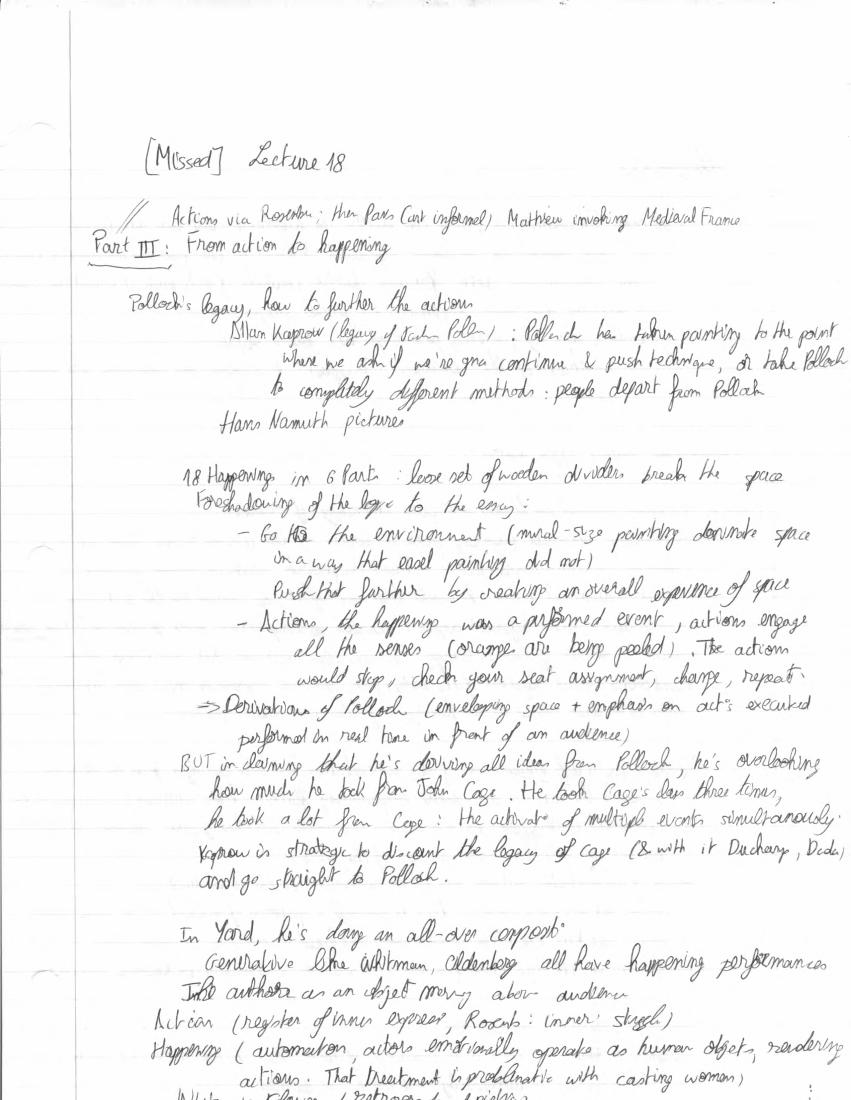 [Missed] Lecture 18
Actions via Rosenbu; then Paris (art informel) Mathieu invoking Medieval France
Part III: From action to happening
Pollock's legacy, how to further the actions
Allan Kaprow (legacy of Jackson Pollock) : Pollock has taken painting to the point
where we ask if we're gna continue & push technique, or take Pollock
to completely different methods : people depart from Pollock
Hans Namuth pictures
18 Happenings in 6 Parts : loose set of wooden dividers break the space
Foreshadowing of the logic to the essay :
- Go to the environment (mural-size painting dominate space
in a way that easel painting did not)
Push that further by creating an overall experience of space
- Actions, the happening was a performed event, actions engage
all the senses (oranges are being peeled). The actions
would stop, check your seat assignment, change, repeat.
=> Derivations of Pollock (enveloping space + emphasis on act° executed
performed in real time in front of an audience)
BUT in claiming that he's deriving all ideas from Pollock, he's overlooking
how much he took from John Cage. He took Cage's class three times,
he took a lot from Cage : the activat° of multiple events simultanously.
Kaprow is strategic to discount the legacy of Cage (& with it Duchamp, Dada)
and go straight to Pollock.
In Yard, he's doing an all-over composit°
Generative like Whitman, Oldenberg all have happening performances
as an object moving above audience
Action (register of inner express, Rosenb : inner struggle)
Happening (automaton, actors emotionally operate as human objets, rendering
actions. That treatment is problematic with casting women)